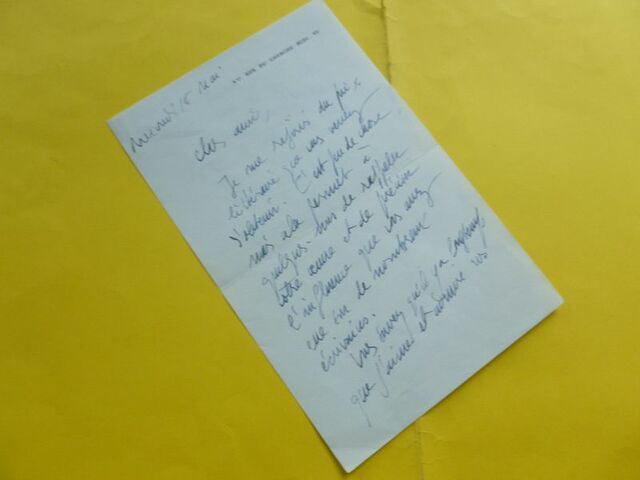 17, RUE DU CHERCHE MIDI, VI
Mercredi 18 Mai
Cher ami,
Je me réjouis du prix
littéraire que vous venez
d'obtenir. C'est peu de chose
mais cela permet à
quelques-uns de rappeler
votre œuvre et de préciser
l'influence que vous avez
eue sur de nombreux
écrivains.
Vous savez qu'il y a longtemps
que j'aime et admire vos